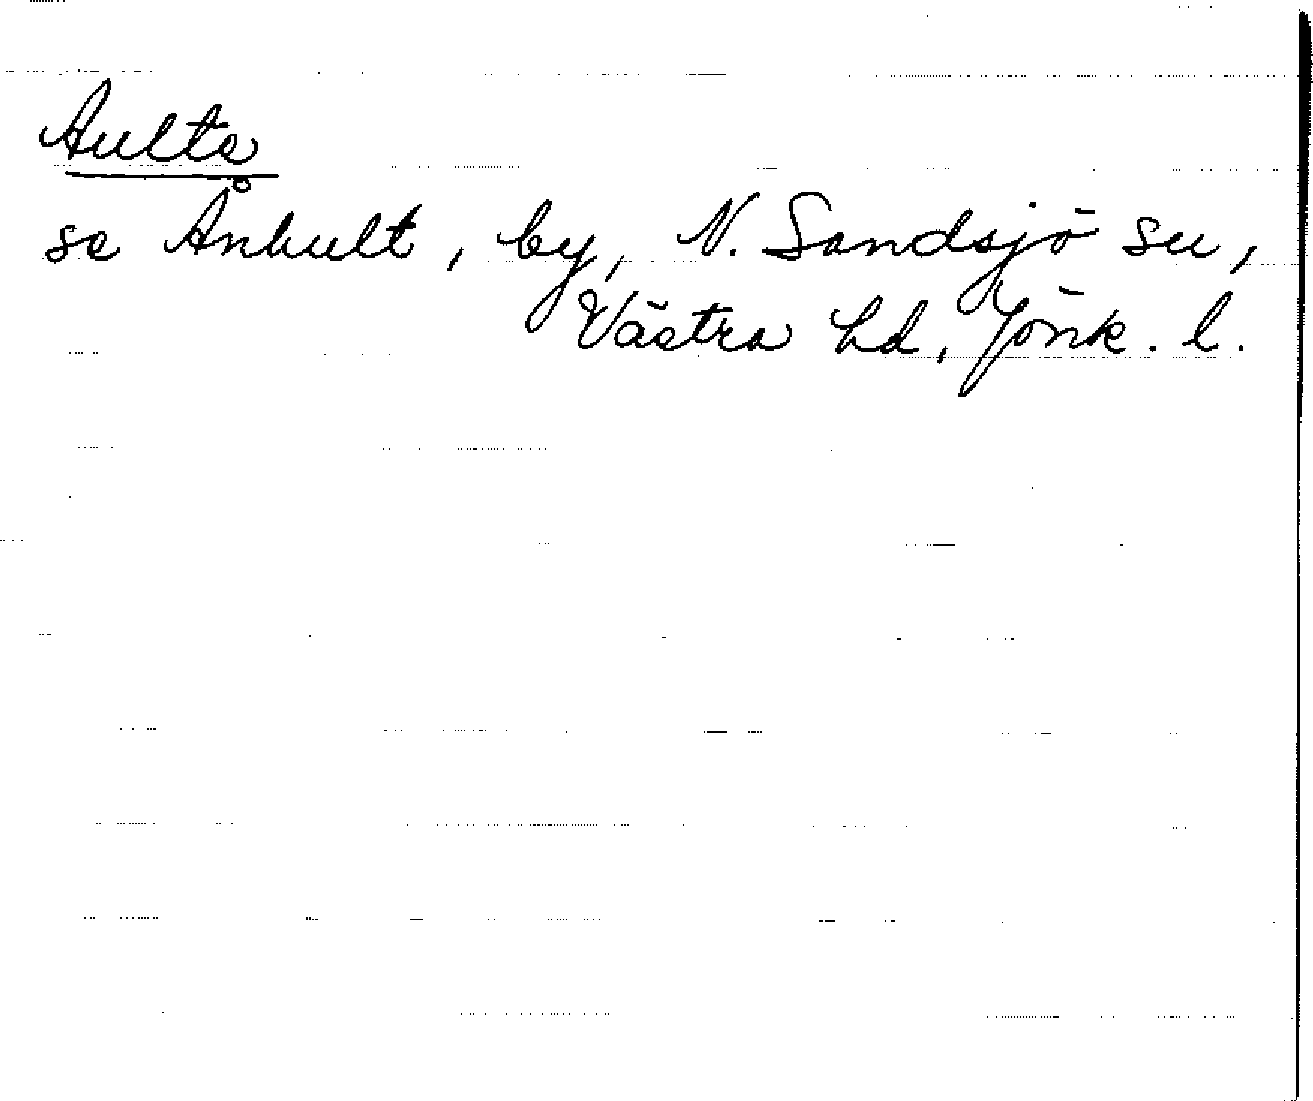 Aulta
se Ånhult, by, N. Sandsjö sn,
Västra hd, Jönk. l.